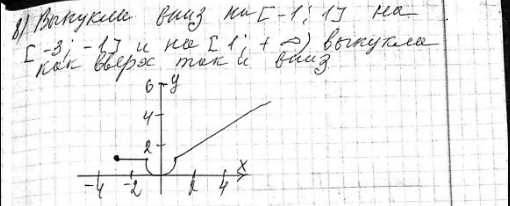 в) Выпукла вниз на [-1; 1] на
[-3; -1] и на [1; +∞) выпукла
как вверх так и вниз
6 y
4
2
x
-4 -2 0 2 4